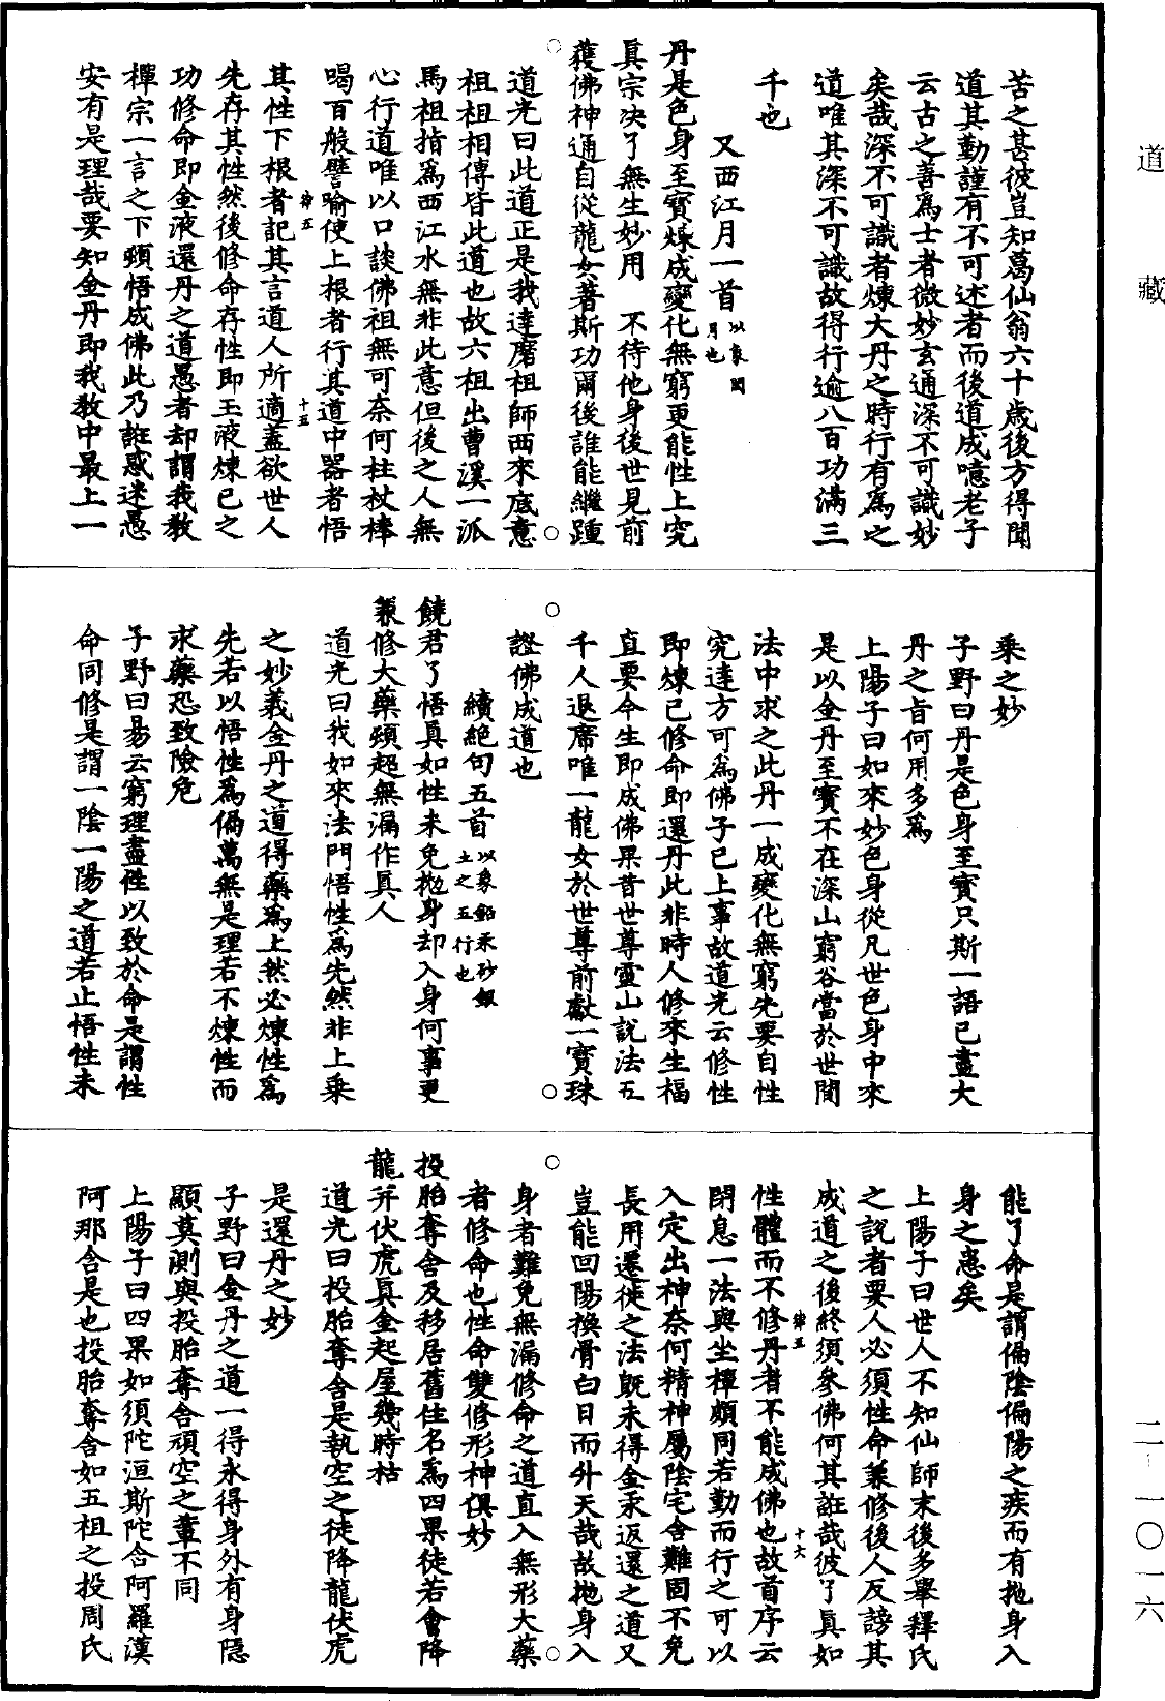 苦之甚彼豈知葛仙翁六十歲後方得聞
道其勤謹有不可述者而後道成噫老子
云古之善爲士者微妙玄通深不可識妙
矣哉深不可識者煉大丹之時行有爲之
道唯其深不可識故得行逾八百功滿三
千也
又西江月一首以象閏月也
丹是色身至寶煉成變化無窮更能性上究
真宗決了無生妙用　不待他身後世見前
獲佛神通自從龍女著斯功爾後誰能繼踵
道光曰此道正是我達磨祖師西來底意
祖祖相傳皆此道也故六祖出曹溪一派
馬祖指爲西江水無非此意但後之人無
心行道唯以口談佛祖無可奈何柱杖棒
喝百般譬喻使上根者行其道中器者悟
律五
十五
其性下根者記其言道人所適蓋欲世人
先存其性然後修命存性即玉液煉已之
功修命即金液還丹之道愚者却謂我教
禪宗一言之下頓悟成佛此乃誑惑迷愚
安有是理哉要知金丹即我教中最上一
乘之妙
子野曰丹是色身至寶只斯一語已盡大
丹之旨何用多爲
上陽子曰如來妙色身從凡世色身中來
是以金丹至寶不在深山窮谷當於世間
法中求之此丹一成變化無窮先要自性
究達方可爲佛子已上事故道光云修性
即煉己修命即還丹此非時人修來生福
直要今生即成佛果昔世尊靈山說法五
千人退席唯一龍女於世尊前獻一寶珠
證佛成道也
續絕句五首以象鉛汞砂銀土之五行也
饒君了悟真如性未免拋身却入身何事更
兼修大藥頓超無漏作真人
道光曰我如來法門悟性爲先然非上乘
之妙義金丹之道得藥爲上然必煉性爲
先若以悟性爲偏萬無是理若不煉性而
求藥恐致險危
子野曰易云窮理盡性以致於命是謂性
命同修是謂一陰一陽之道若止悟性未
能了命是謂偏陰偏陽之疾而有拋身入
身之患矣
上陽子曰世人不知仙師末後多舉釋氏
之說者要人必須性命兼修後人反謗其
成道之後終須參佛何其誑哉彼了真如
律五
十六
性體而不修丹者不能成佛也故首序云
閉息一法與坐禪頗同若勤而行之可以
入定出神奈何精神屬陰宅舍難固不免
長用遷徙之法既未得金汞返還之道又
豈能回陽換骨白日而升天哉故拋身入
身者難免無漏修命之道直入無形大藥
者修命也性命雙修形神俱妙
投胎奪舍及移居舊住名爲四果徒若會降
龍并伏虎真金起屋幾時枯
道光曰投胎奪舍是執空之徒降龍伏虎
是還丹之妙
子野曰金丹之道一得永得身外有身隱
顯莫測與投胎奪舍頑空之輩不同
上陽子曰四果如須陀洹斯陀含阿羅漢
阿那含是也投胎奪舍如五祖之投周氏
道藏
二一一〇一六